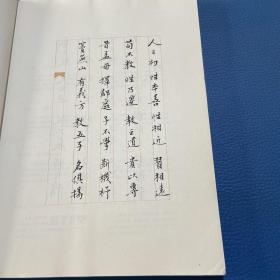 人之初 性本善 性相近 習相遠
苟不教 性乃遷 教之道 貴以專
昔孟母 擇鄰處 子不學 斷機杼
竇燕山 有義方 教五子 名俱揚